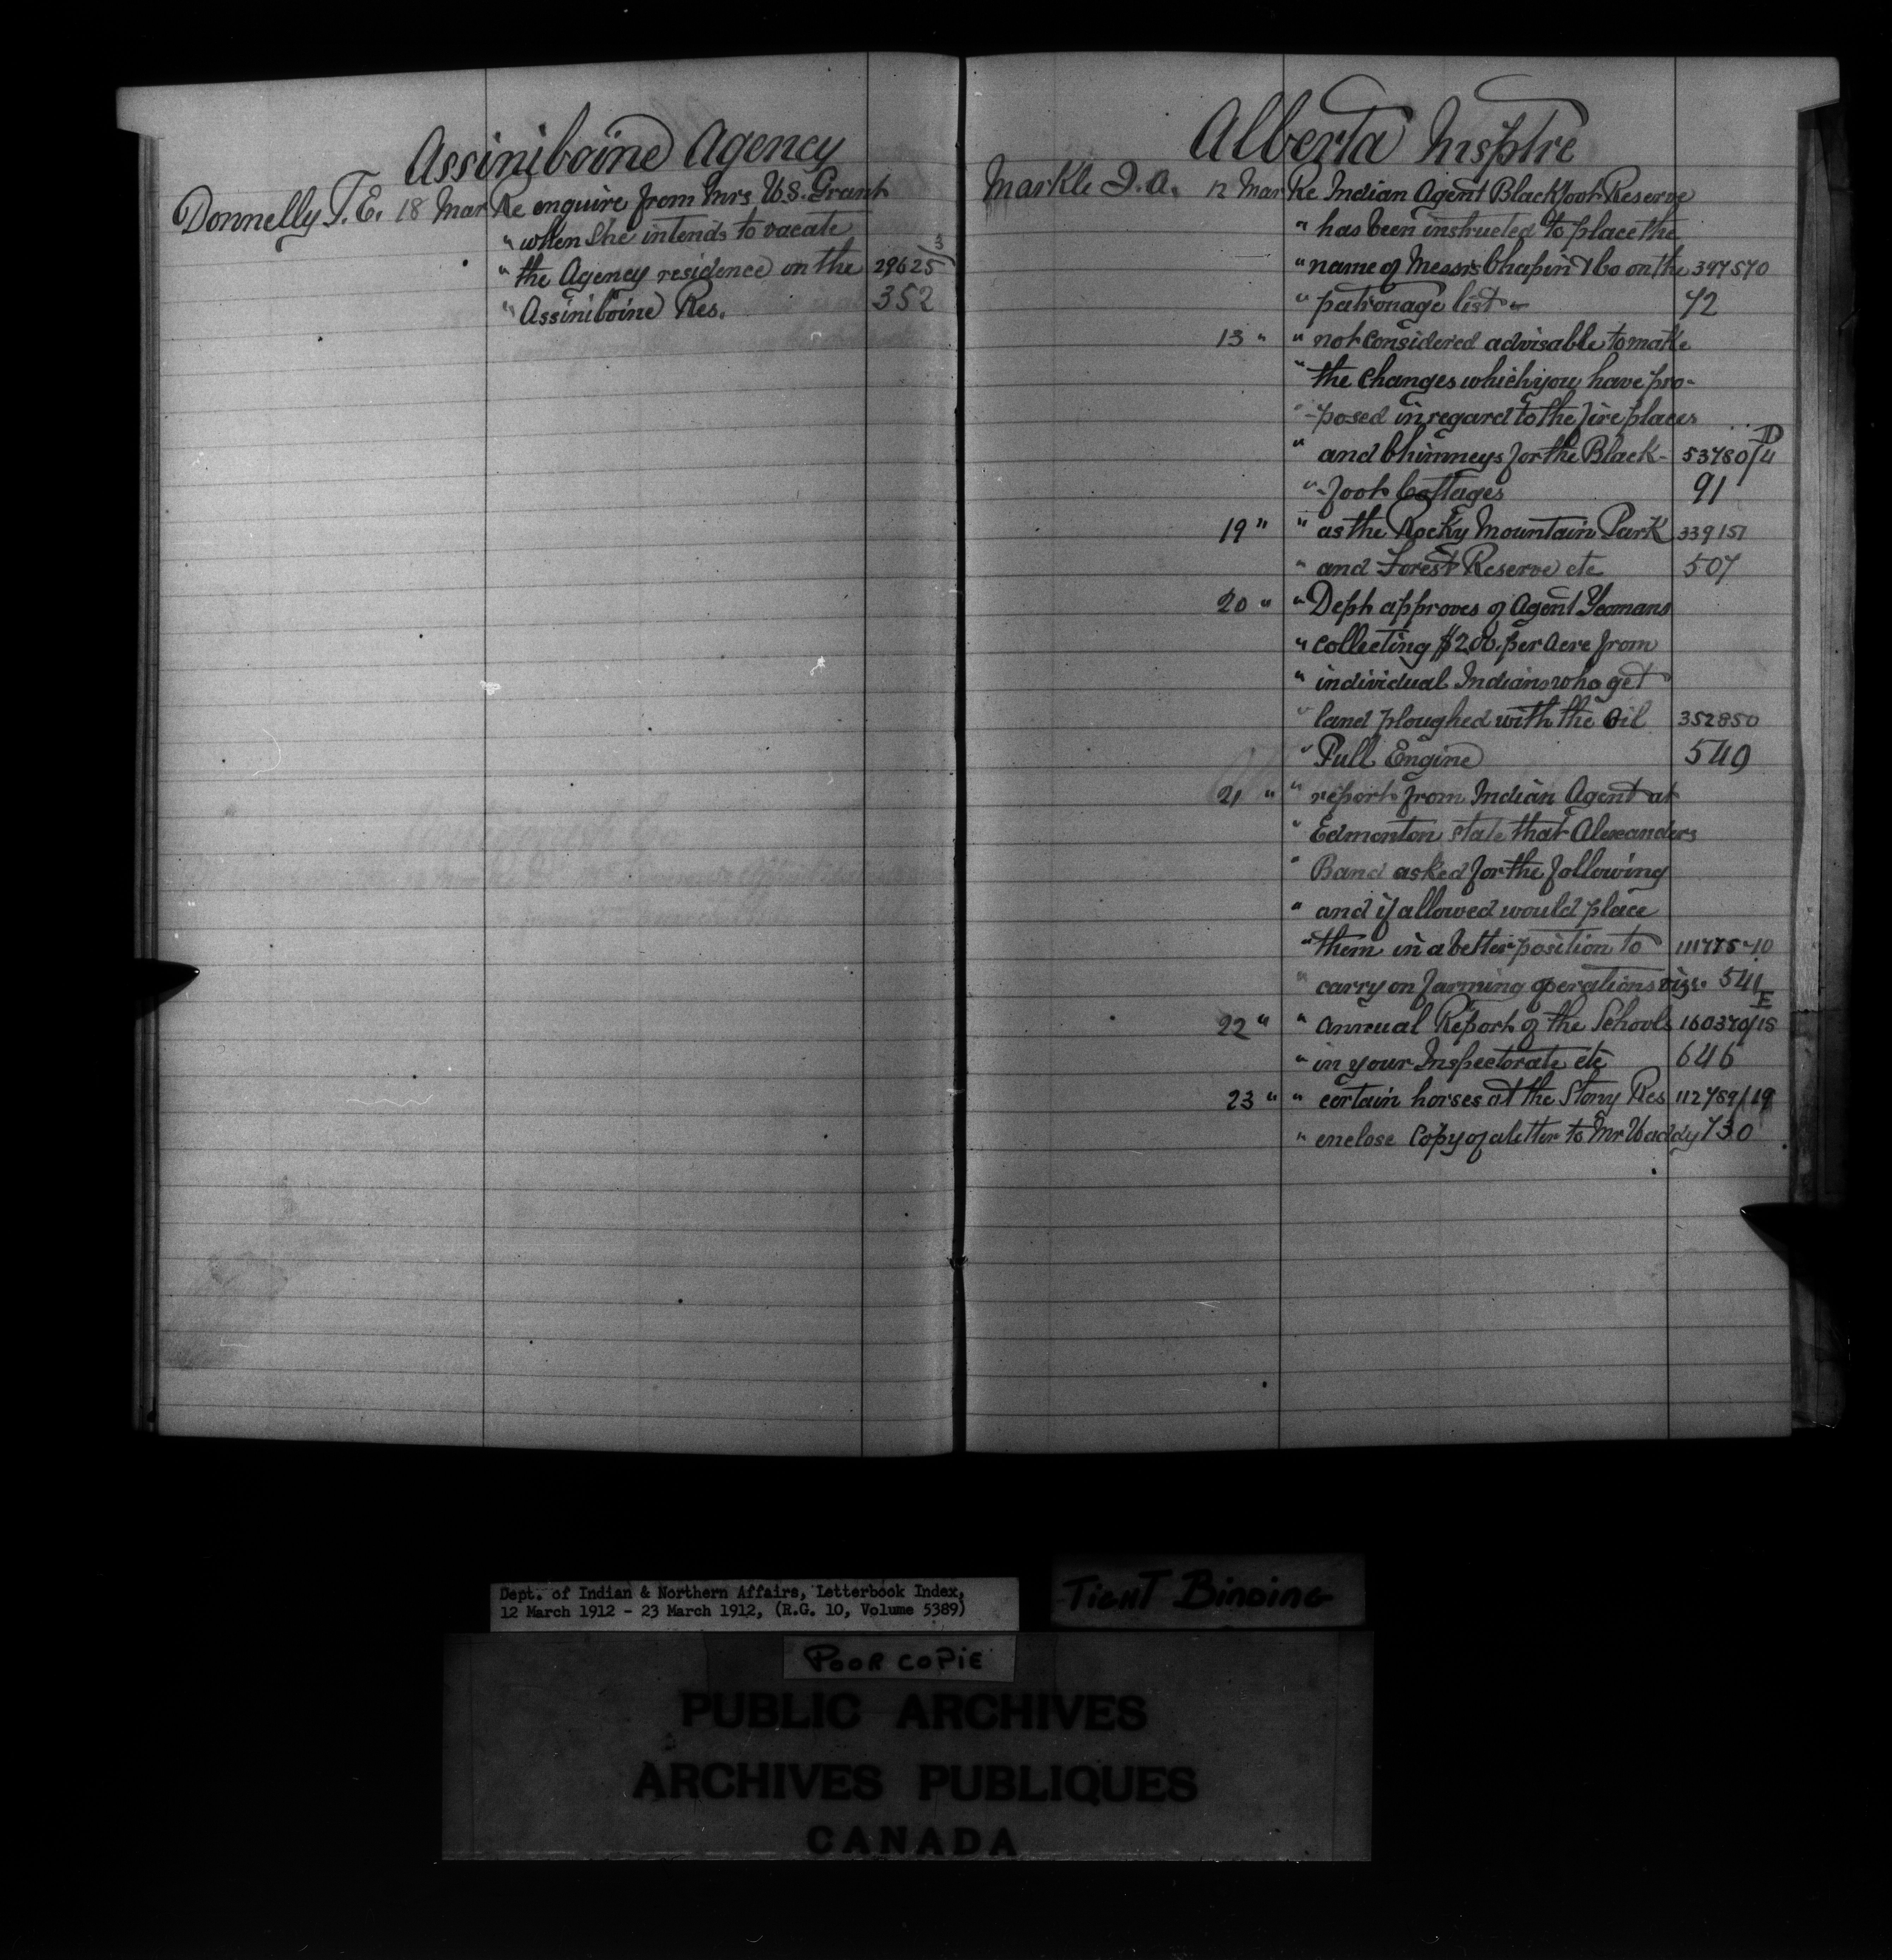 Assiniboine Agency
Donnelly T.E. 18 Mar Re enquire from Mrs W.S. Grant
" when She intends to vacate
" the Agency residence on the 29625/3
" Assiniboine Res. 352
Alberta Insptre
Markle J.A. 12 Mar Re Indian Agent Blackfoot Reserve
" has been instructed to place the
" name of Messrs Chapin & Co on the 397570
" patronage list - 72
13 " " not considered advisable to make
" the Changes which you have pro-
" -posed in regard to the fire places
" and Chimneys for the Black- 53780/4 D
" -foot Cottages 91
19 " " as the Rocky Mountain Park 339151
" and Forest Reserve etc 507
20 " " Dept approves of Agent Yeomans
" Collecting $2.00 per Acre from
" individual Indians who get
" land ploughed with the Oil 352850
" Pull Engine 549
21 " " report from Indian Agent at
" Edmonton state that Alexanders
" Band asked for the following
" and if allowed would place
" them in a better position to
" carry on farming operations viz. 541
22 " " Annual Report of the Schools 160370/15 E
" in your Inspectorate etc 646
23 " " certain horses at the Stony Res 112789/19
" enclose Copy of a letter to Mr Waddy 730
Dept. of Indian & Northern Affairs, Letterbook Index,
12 March 1912 - 23 March 1912, (R.G. 10, Volume 5389)
TIGHT BINDING
POOR COPIE
PUBLIC ARCHIVES
ARCHIVES PUBLIQUES
CANADA